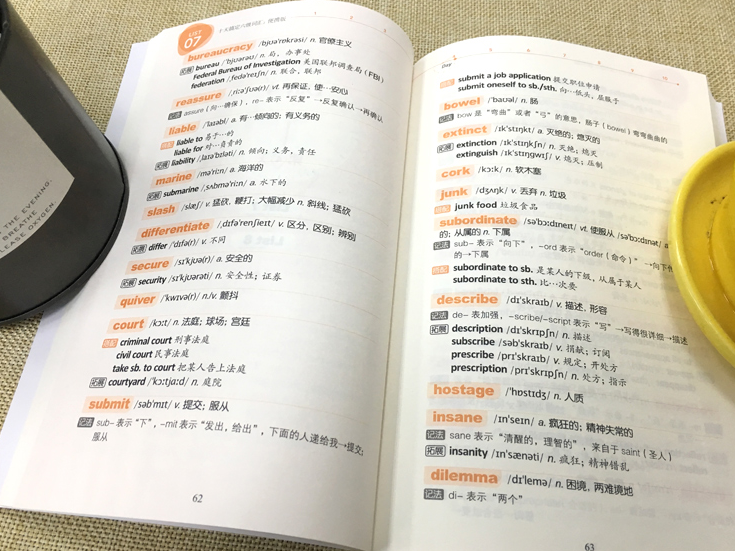 LIST
07
十天搞定六级词汇: 便携版
1 2 3
bureaucracy /bjʊəˈrɒkrəsi/ n. 官僚主义
拓展 bureau /ˈbjʊərəʊ/ n. 局, 办事处
Federal Bureau of Investigation 美国联邦调查局 (FBI)
federation /ˌfedəˈreɪʃn/ n. 联合, 联邦
reassure /ˌriːəˈʃʊə(r)/ vt. 再保证, 使…安心
记法 assure (向…确保), re- 表示 "反复" →反复确认→再确认
liable /ˈlaɪəbl/ a. 有…倾向的; 有义务的
搭配 liable to 易于…的
liable for 对…负责的
拓展 liability /ˌlaɪəˈbɪləti/ n. 倾向; 义务, 责任
marine /məˈriːn/ a. 海洋的
拓展 submarine /ˌsʌbməˈriːn/ a. 水下的
slash /slæʃ/ v. 猛砍, 鞭打; 大幅减少 n. 斜线; 猛砍
differentiate /ˌdɪfəˈrenʃieɪt/ v. 区分, 区别; 辨别
拓展 differ /ˈdɪfə(r)/ v. 不同
secure /sɪˈkjʊə(r)/ a. 安全的
拓展 security /sɪˈkjʊərəti/ n. 安全性; 证券
quiver /ˈkwɪvə(r)/ n./v. 颤抖
court /kɔːt/ n. 法庭; 球场; 宫廷
搭配 criminal court 刑事法庭
civil court 民事法庭
take sb. to court 把某人告上法庭
拓展 courtyard /ˈkɔːtjɑːd/ n. 庭院
submit /səbˈmɪt/ v. 提交; 服从
记法 sub- 表示 "下", -mit 表示 "发出, 给出", 下面的人递给我→提交;
服从
62
Day 4 5 6 7 8 9 10
搭配 submit a job application 提交职位申请
submit oneself to sb./sth. 向…低头, 屈服于
bowel /ˈbaʊəl/ n. 肠
记法 bow 是 "弯曲" 或者 "弓" 的意思, 肠子 (bowel) 弯弯曲曲的
extinct /ɪkˈstɪŋkt/ a. 灭绝的; 熄灭的
拓展 extinction /ɪkˈstɪŋkʃn/ n. 灭绝; 熄灭
extinguish /ɪkˈstɪŋɡwɪʃ/ v. 熄灭; 压制
cork /kɔːk/ n. 软木塞
junk /dʒʌŋk/ v. 丢弃 n. 垃圾
搭配 junk food 垃圾食品
subordinate /səˈbɔːdɪneɪt/ vt. 使服从 /səˈbɔːdɪnət/ a.
的; 从属的 n. 下属
记法 sub- 表示 "向下", -ord 表示 "order (命令)" →向下
的→下属
搭配 subordinate to sb. 是某人的下级, 从属于某人
subordinate to sth. 比…次要
describe /dɪˈskraɪb/ v. 描述, 形容
记法 de- 表加强, -scribe/-script 表示 "写" →写得很详细→描述
拓展 description /dɪˈskrɪpʃn/ n. 描述
subscribe /səbˈskraɪb/ v. 捐献; 订阅
prescribe /prɪˈskraɪb/ v. 规定; 开处方
prescription /prɪˈskrɪpʃn/ n. 处方; 指示
hostage /ˈhɒstɪdʒ/ n. 人质
insane /ɪnˈseɪn/ a. 疯狂的; 精神失常的
记法 sane 表示 "清醒的, 理智的", 来自于 saint (圣人)
拓展 insanity /ɪnˈsænəti/ n. 疯狂; 精神错乱
dilemma /dɪˈlemə/ n. 困境, 两难境地
记法 di- 表示 "两个"
63
THE EVENING.
BREATHE
EASE OXYGEN